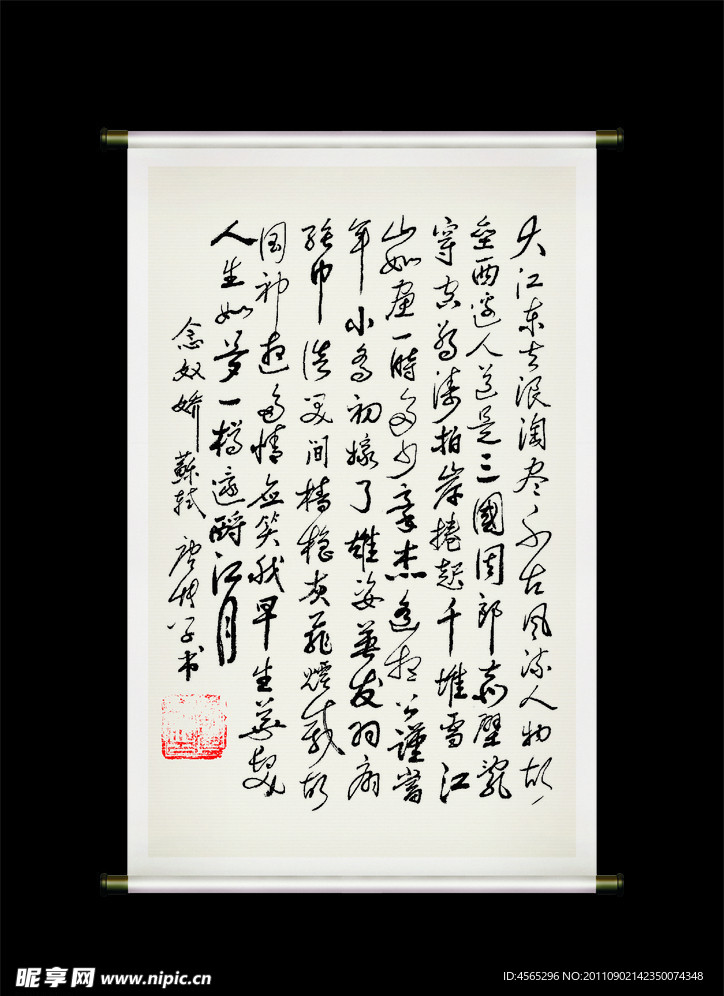 大江东去浪淘尽千古风流人物故
垒西边人道是三國周郎赤壁亂
穿空惊涛拍岸捲起千堆雪江
山如画一时多少豪杰遥想公謹當
年小乔初嫁了雄姿英发羽扇
纶巾谈笑间樯橹灰飞煙灭故
国神遊多情应笑我早生华髮
人生如夢一樽還酹江月
念奴娇 蘇軾 学书
昵享网 www.nipic.cn
ID:4565296 NO:20110902142350074348